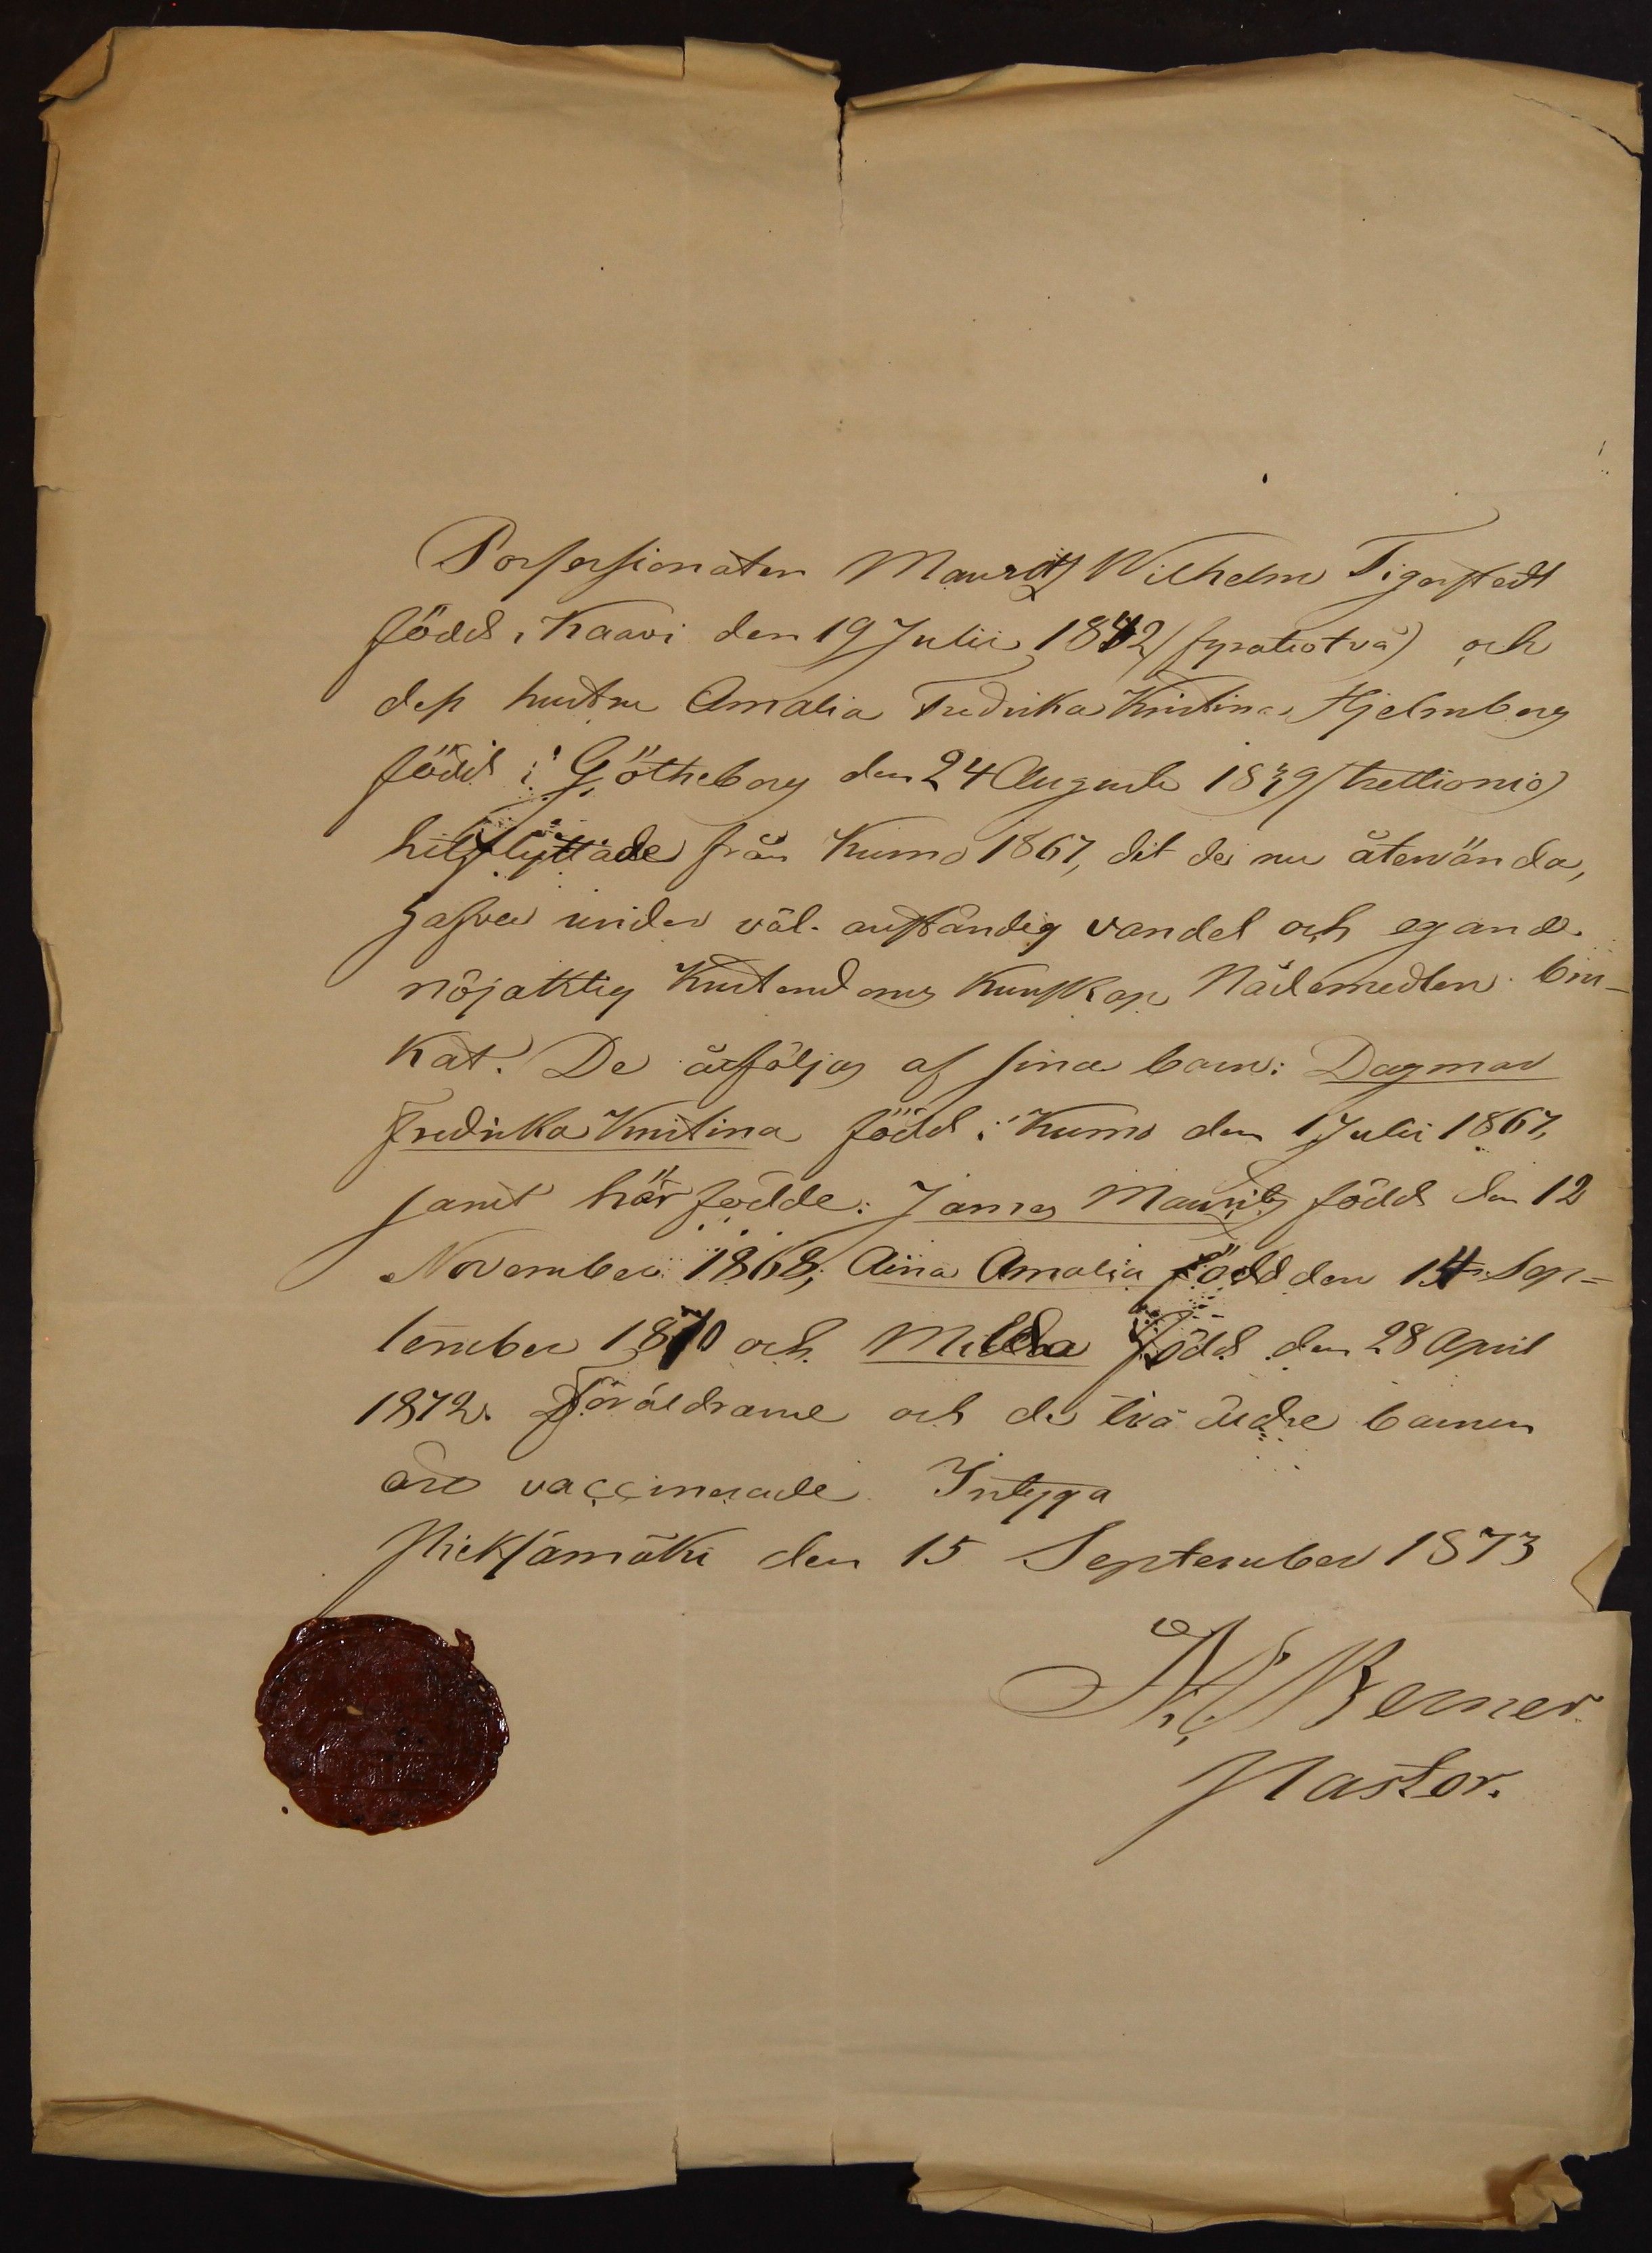 Possessionaten Mauritz Wilhelm Tigerstedt
född i Kaavi den 19 Julii 1842 (fyratiotvå) och
dess hustru Amalia Fredrika Kristina Hjelmberg
född i Götheborg den 24 Augusti 1839 (trettionio)
hitflyttade från Kumo 1867, dit de nu återvända,
hafva under väl anständig vandel och egande
nöjaktig Kristendoms Kunskap Nådemedlen bru-
kat. De åtföljas af sina barn: Dagmar
Fredrika Kristina född i Kumo den 1 Julii 1867,
samt här födde: James Mauritz född den 12
November 1868, Aina Amalia född den 14 Sep=
tember 1870 och Milda född den 28 April
1872. Föräldrarne och de två äldre barnen
äro vaccinerade. Intyga
Pieksämäki den 15 September 1873
Berner
Pastor.